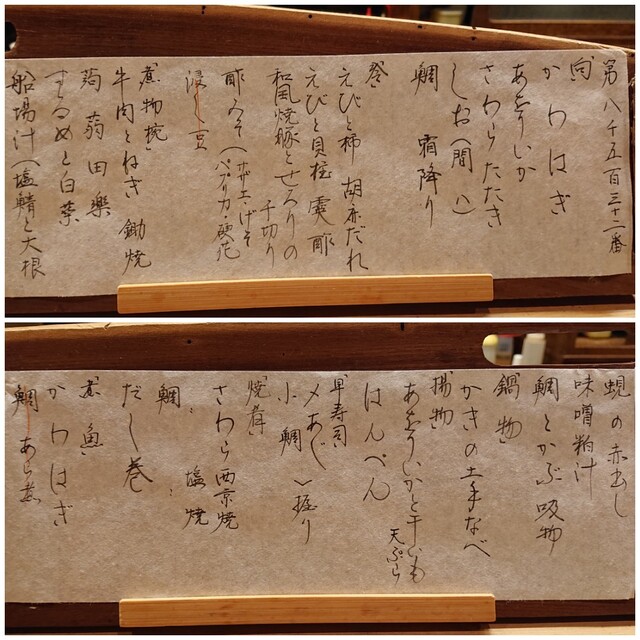 第八千五百三十二番
向
かわはぎ
あをりいか
さわらたたき
しお(間八)
鯛 霜降り
発
えびと柿 胡麻だれ
えびと貝柱 霙酢
和風焼豚とせろりの
千切り
酢みそ(サザエ・げそ
パプリカ・硬花
浸し豆
煮物椀
牛肉とねぎ 鋤焼
蒟蒻田楽
するめと白菜
船場汁(塩鯖と大根
蜆の赤出し
味噌粕汁
鯛とかぶ 吸物
鍋物
かきの土手なべ
揚物
あをりいかと干いも
天ぷら
はんぺん
早寿司
〆あじ
小鯛 〉握り
焼肴
さわら西京焼
鯛 塩焼
だし巻
煮魚
かわはぎ
鯛あら煮